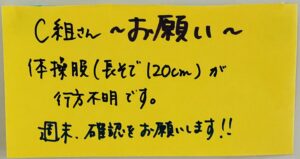 C組さん ～お願い～
体操服(長そで120cm)が
行方不明です。
週末、確認をお願いします!!